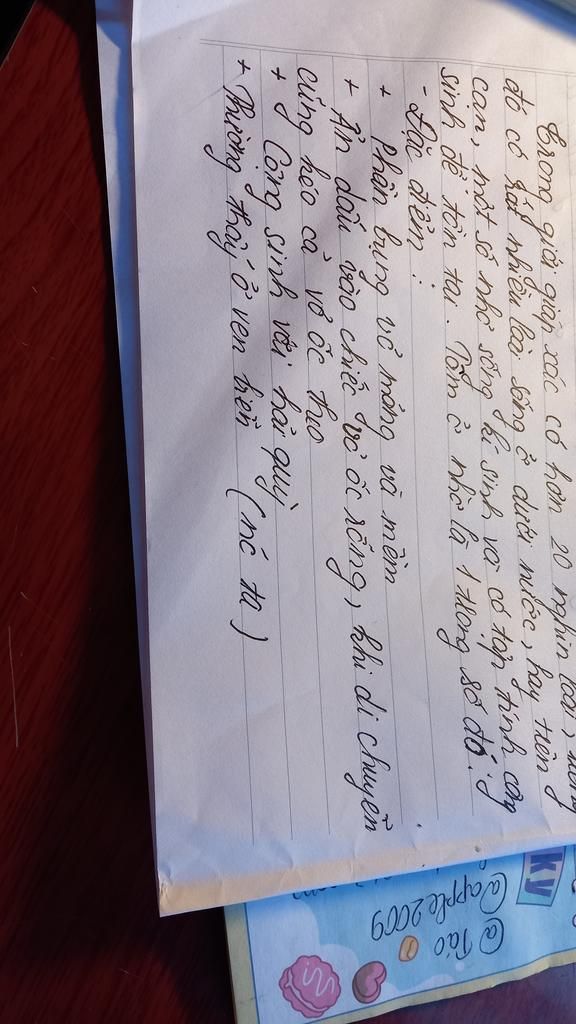 Trong giới giáp xác có hơn 20 nghìn loài, trong
đó có rất nhiều loài sống ở dưới nước, hay trên
cạn, một số nhỏ sống kí sinh và có tập tính cộng
sinh để tồn tại. Tôm ở nhờ là 1 trong số đó.
- Đặc điểm:
+ Phần bụng vỏ mỏng và mềm
+ Ẩn dấu vào chiếc vỏ ốc rỗng, khi di chuyển
cũng kéo cả vỏ ốc theo
+ Cộng sinh với hải quỳ
+ Thường thấy ở ven biển (nc ta)
KY
@apple2009
@Táo